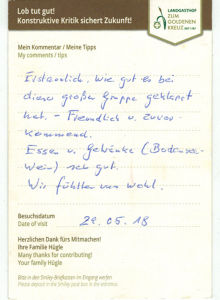 Lob tut gut!
Konstruktive Kritik sichert Zukunft!
LANDGASTHOF
ZUM
GOLDENEN
KREUZ
Mein Kommentar / Meine Tipps
My comments / tips
Erstaunlich, wie gut es bei
dieser großen Gruppe geklappt
hat. - Freundlich u. zuvor-
kommend.
Essen u. Getränke (Bodensee-
Wein) sehr gut.
Wir fühlten uns wohl.
Besuchsdatum
Date of visit
29.05.18
Herzlichen Dank fürs Mitmachen!
Ihre Familie Hügle
Many thanks for contributing!
Your family Hügle
Bitte in den Smiley-Briefkasten im Eingang werfen
Please deposit in the smiley post box in the entrance